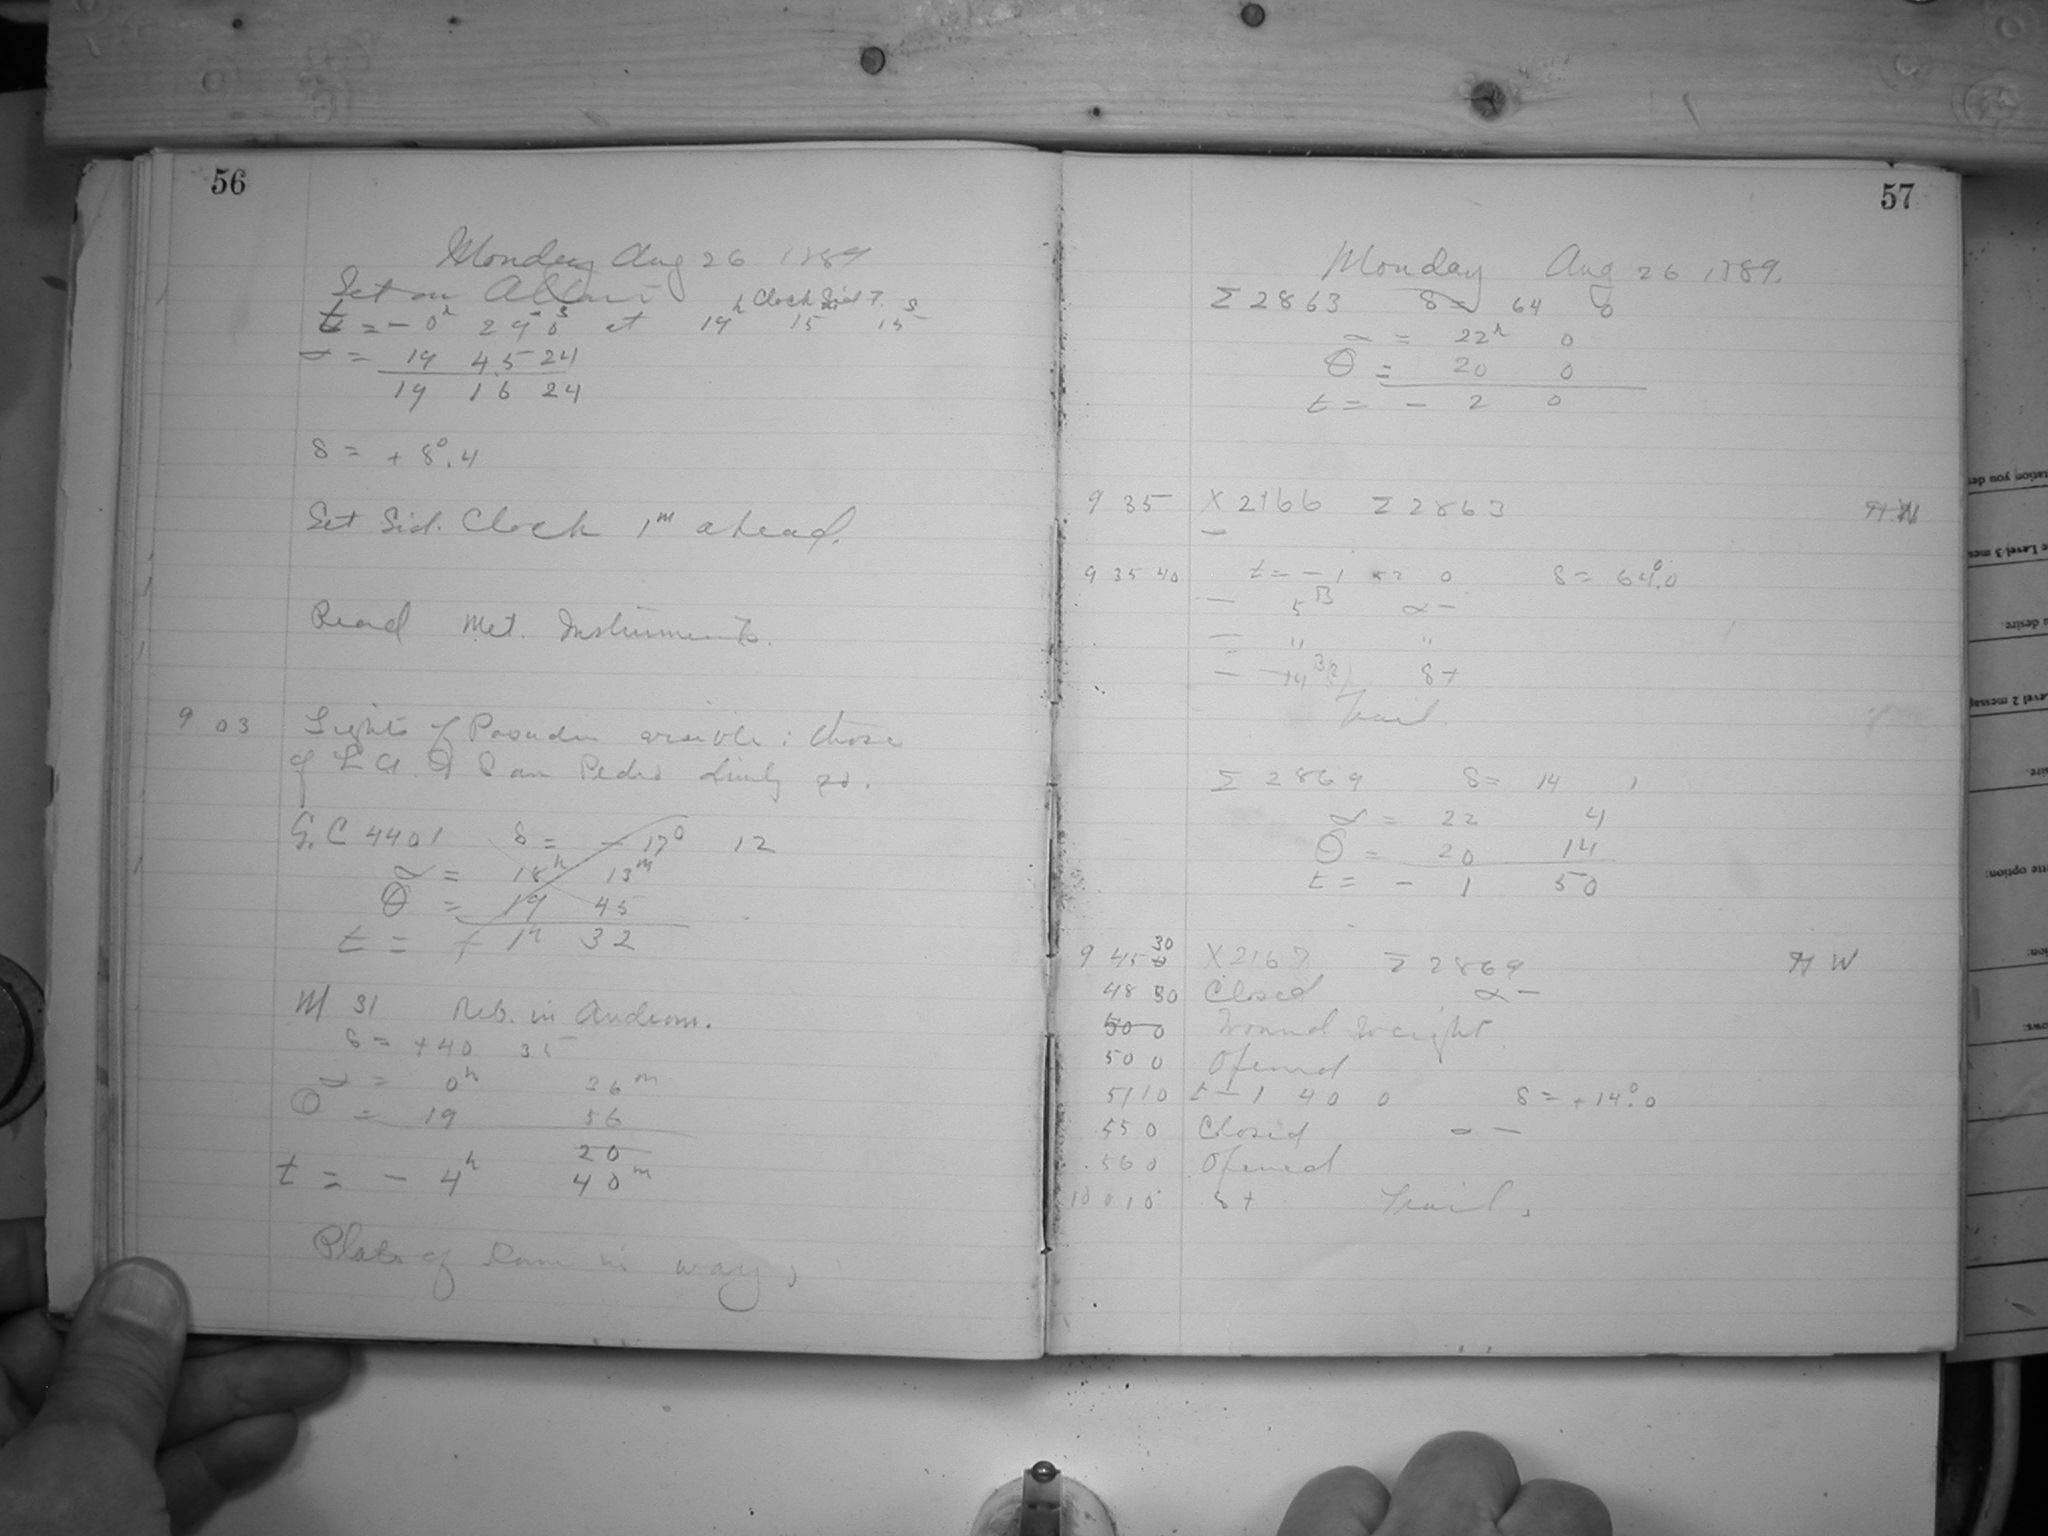 56
Monday Aug 26 1889
Set on Altair
Clock Sid T.
t = - 0h 29 0s at 19h 15 15s
α = 19 45 24
19 16 24
δ = + 8°.4
Set Sid. Clock 1m ahead.
Read Met. Instruments.
9 03 Lights of Pasadin visible; those
of L A. & San Pedro dimly so.
G. C 4401 δ = - 17° 12
α = 18h 13m
θ = 19 45
t = + 1h 32
M 31 Neb. in Androm.
δ = + 40 35
α = 0h 36m
θ = 19 56
20
t = - 4h 40m
of Dome in way,
57
Monday Aug 26 1889.
Σ 2863 δ = 64 8
α = 22h 0
θ = 20 0
t = - 2 0
9 35 X 2166 Σ 2863 H.W
-
9 35 40 t = - 1 52 0 δ = 64°.0
- 5 B α -
- " "
- 14 δ +
Trail.
Σ 2869 δ = 14 1
α = 22 4
θ = 20 14
t = - 1 50
9 45 30 X 2167 Σ 2869 H W
48 30 Closed α -
50 0 Wound weight.
50 0 Opened
51 10 t - 1 40 0 δ = + 14°.0
55 0 Closed α -
56 0 Opened
10 0 10 δ + Trail.